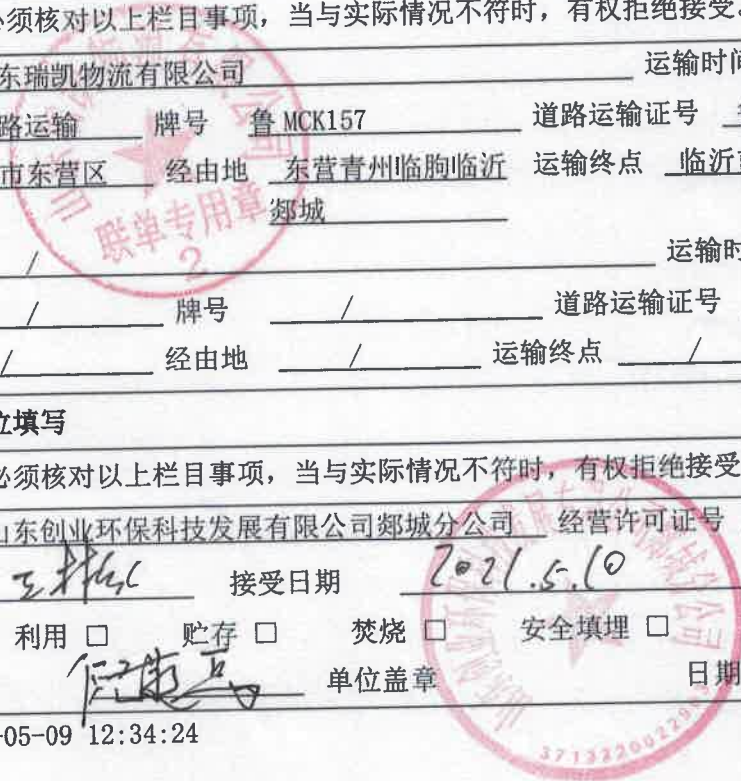 必须核对以上栏目事项，当与实际情况不符时，有权拒绝接受。
东瑞凯物流有限公司 运输时间
路运输 牌号 鲁MCK157 道路运输证号
市东营区 经由地 东营青州临朐临沂 运输终点 临沂
郯城
联单专用章
2
/ 运输时
/ 牌号 / 道路运输证号
/ 经由地 / 运输终点 /
位填写
必须核对以上栏目事项，当与实际情况不符时，有权拒绝接受
山东创业环保科技发展有限公司郯城分公司 经营许可证号
接受日期 2021.5.10
利用 □ 贮存 □ 焚烧 □ 安全填埋 □
单位盖章 日期
-05-09 12:34:24